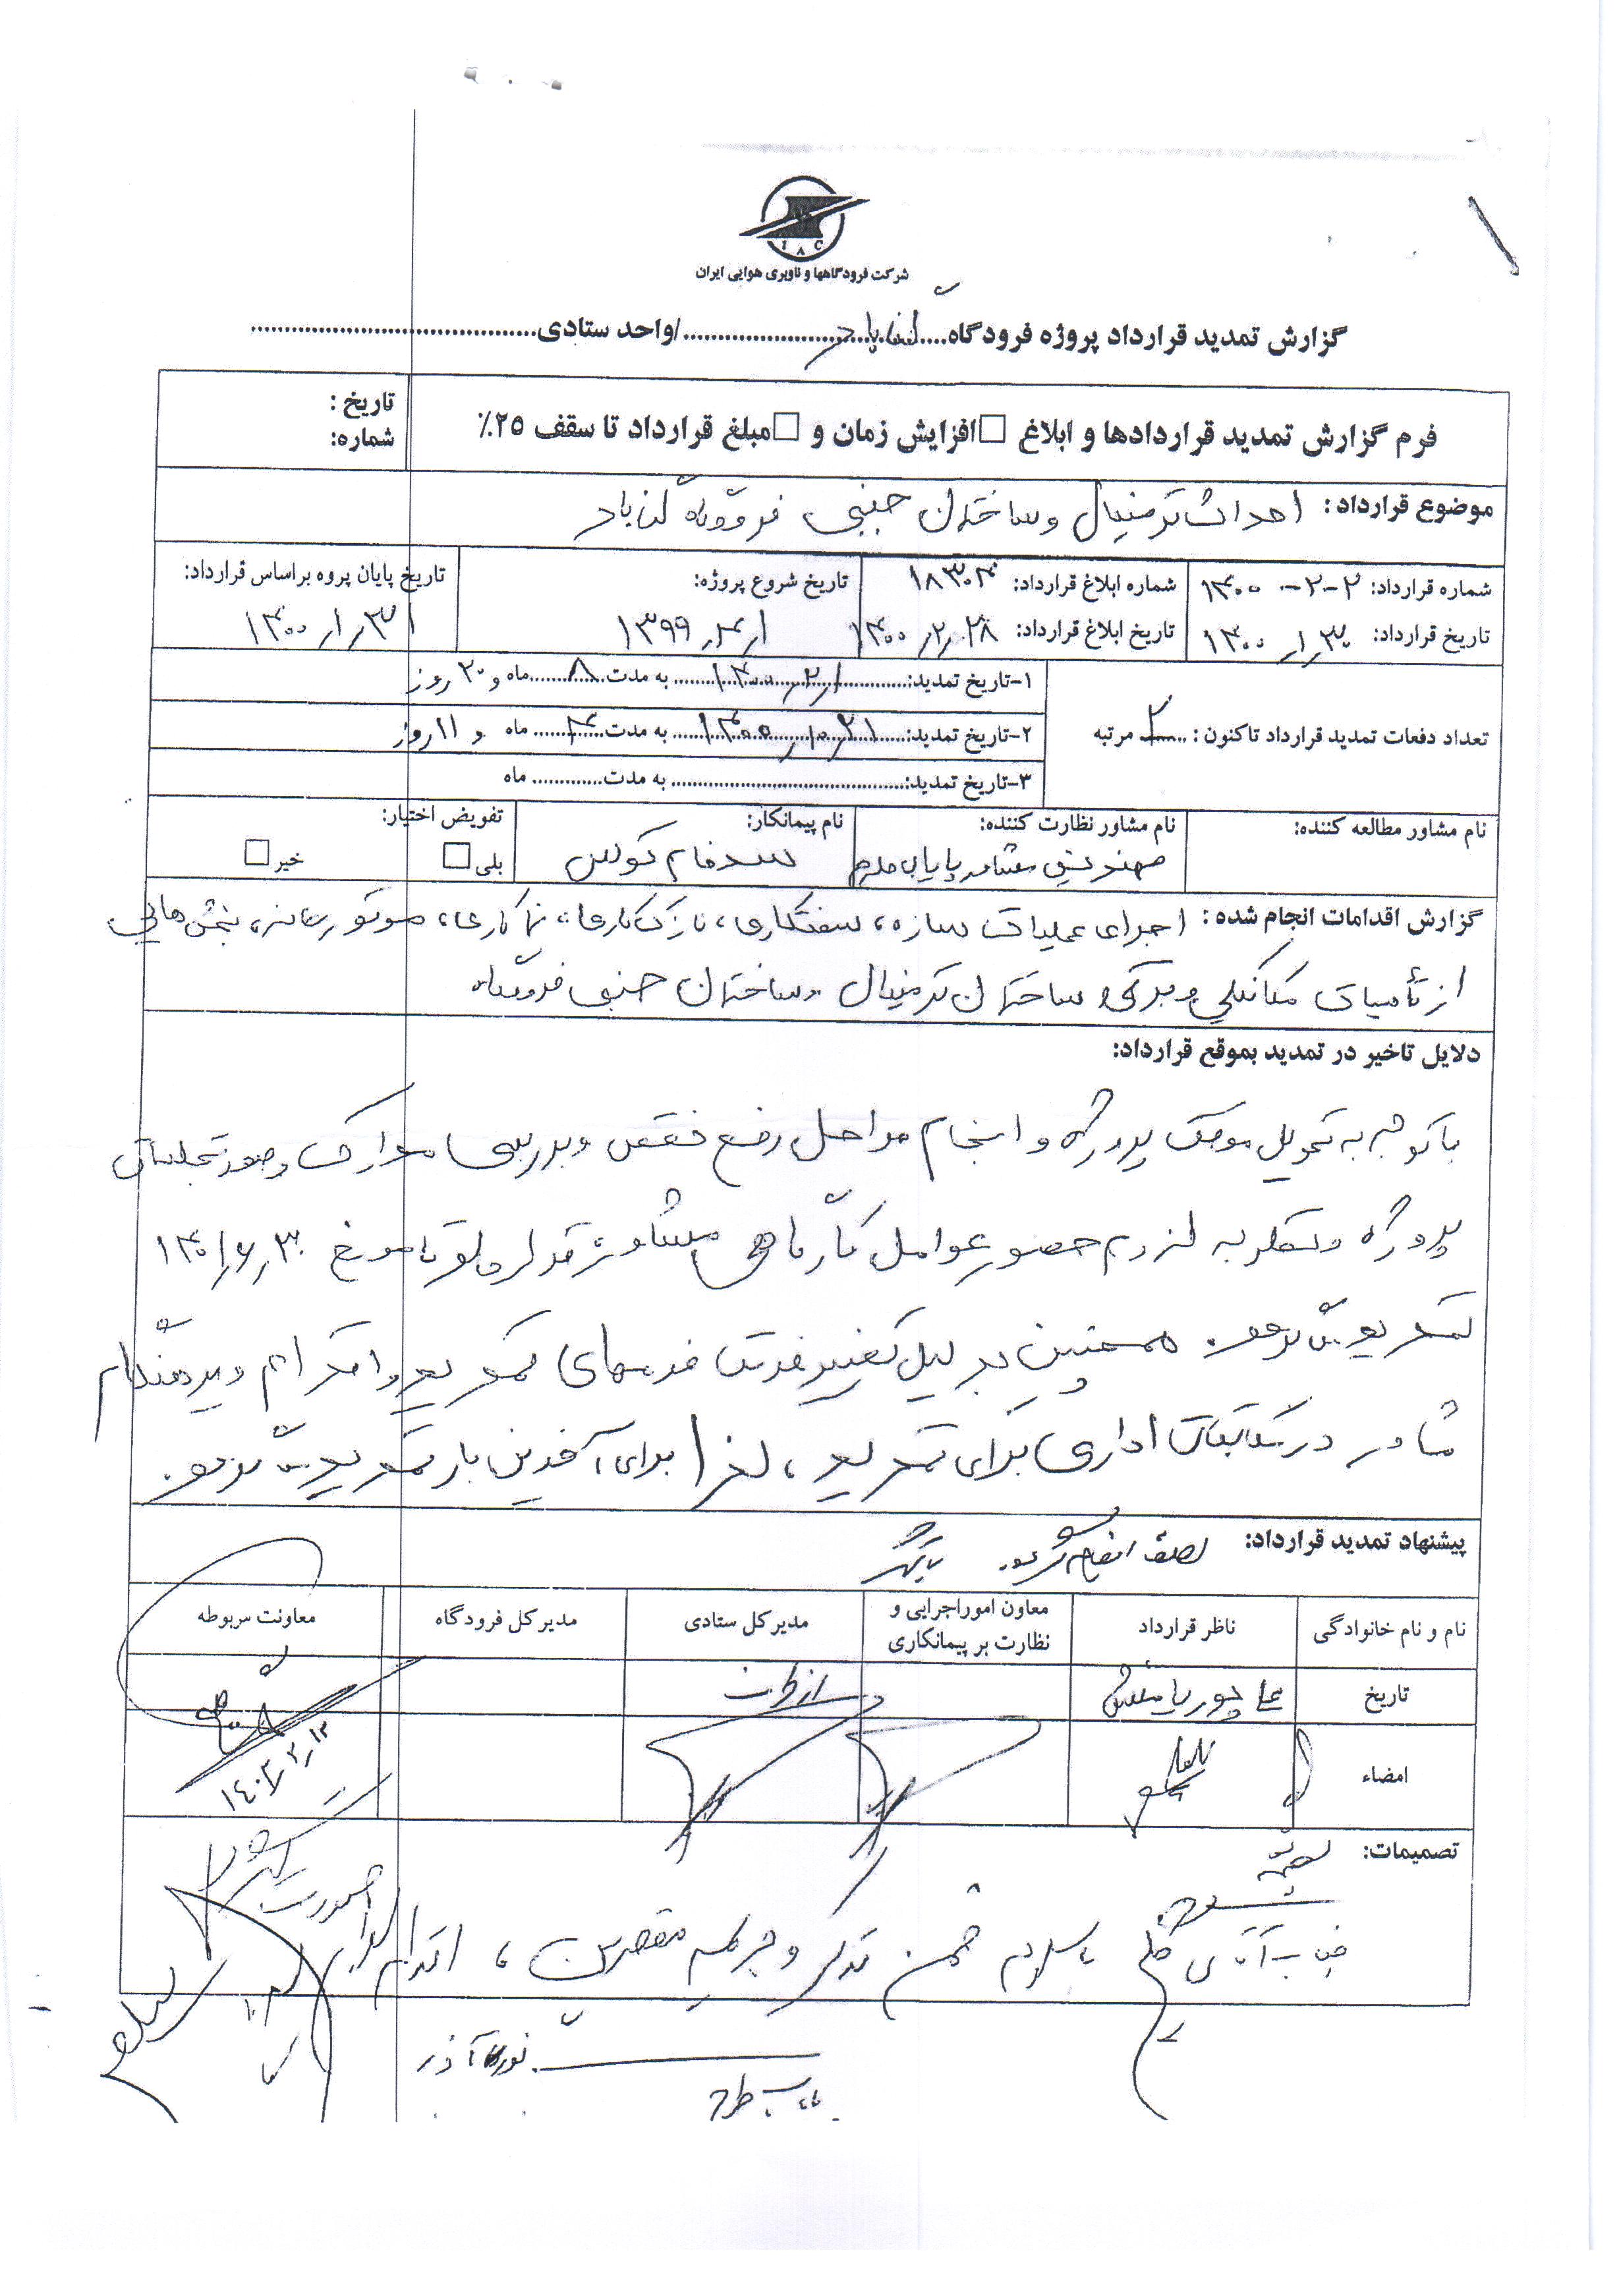 I A C
شرکت فرودگاهها و ناوبری هوایی ایران
گزارش تمدید قرارداد پروژه فرودگاه..... گناباد ...../واحد ستادی.....
فرم گزارش تمدید قراردادها و ابلاغ □افزایش زمان و □مبلغ قرارداد تا سقف ۲۵٪
تاریخ :
شماره:
موضوع قرارداد : احداث ترمینال و ساختمان جنبی فرودگاه گناباد
شماره قرارداد: ۱۴۰۰-۲-۲
تاریخ قرارداد: ۱۴۰۰/۱/۳۰
شماره ابلاغ قرارداد: ۱۸۳۰۴
تاریخ ابلاغ قرارداد: ۱۴۰۰/۲/۲۸
تاریخ شروع پروژه:
۱۳۹۹/۴/۱
تاریخ پایان پروه براساس قرارداد:
۱۴۰۰/۱/۳۱
تعداد دفعات تمدید قرارداد تاکنون : ..۲.. مرتبه
۱-تاریخ تمدید:.....۱۴۰۰/۲/۱..... به مدت...۸...ماه و ۲۰ روز
۲-تاریخ تمدید:.....۱۴۰۰/۱۰/۲۱..... به مدت...۴... ماه و ۱۱ روز
۳-تاریخ تمدید:..... به مدت..... ماه
نام مشاور مطالعه کننده:
نام مشاور نظارت کننده:
مهندسین مشاور پایاب
نام پیمانکار:
تفویض اختیار:
بلی□ خیر□
گزارش اقدامات انجام شده : اجرای عملیات سازه، سفتکاری، نازک کاری، نما کاری، موتورخانه، بخش هایی
از تأسیسات مکانیکی و برقی ساختمان ترمینال و ساختمان جنبی فرودگاه
دلایل تاخیر در تمدید بموقع قرارداد:
با توجه به تحویل موقت پروژه و انجام مراحل رفع نقص و بررسی مدارک و صورتجلسات
پروژه و نظر به لزوم حضور عوامل کارگاهی مشاور قرارداد تا مورخ ۱۴۰۱/۶/۳۰
تمدید می گردد. همچنین به دلیل تغییر فرمت فرمهای تمدید و اقدام دیرهنگام
مشاور در مکاتبات اداری برای تمدید، لذا برای آخرین بار تمدید می گردد.
پیشنهاد تمدید قرارداد:
نام و نام خانوادگی
ناظر قرارداد
معاون اموراجرایی و نظارت بر پیمانکاری
مدیر کل ستادی
مدیر کل فرودگاه
معاونت مربوطه
تاریخ
امضاء
۱۴۰۲/۲/۱۳
تصمیمات:
جناب آقای با سلام ضمن تذکر و جریمه مقصرین، اقدام